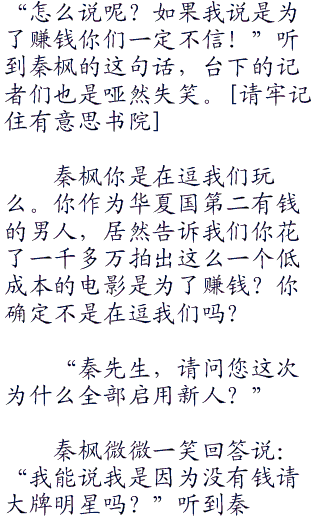 “怎么说呢？如果我说是为
了赚钱你们一定不信！”听
到秦枫的这句话，台下的记
者们也是哑然失笑。[请牢记
住有意思书院]
秦枫你是在逗我们玩
么。你作为华夏国第二有钱
的男人，居然告诉我们你花
了一千多万拍出这么一个低
成本的电影是为了赚钱？你
确定不是在逗我们吗？
“秦先生，请问您这次
为什么全部启用新人？”
秦枫微微一笑回答说：
“我能说我是因为没有钱请
大牌明星吗？”听到秦